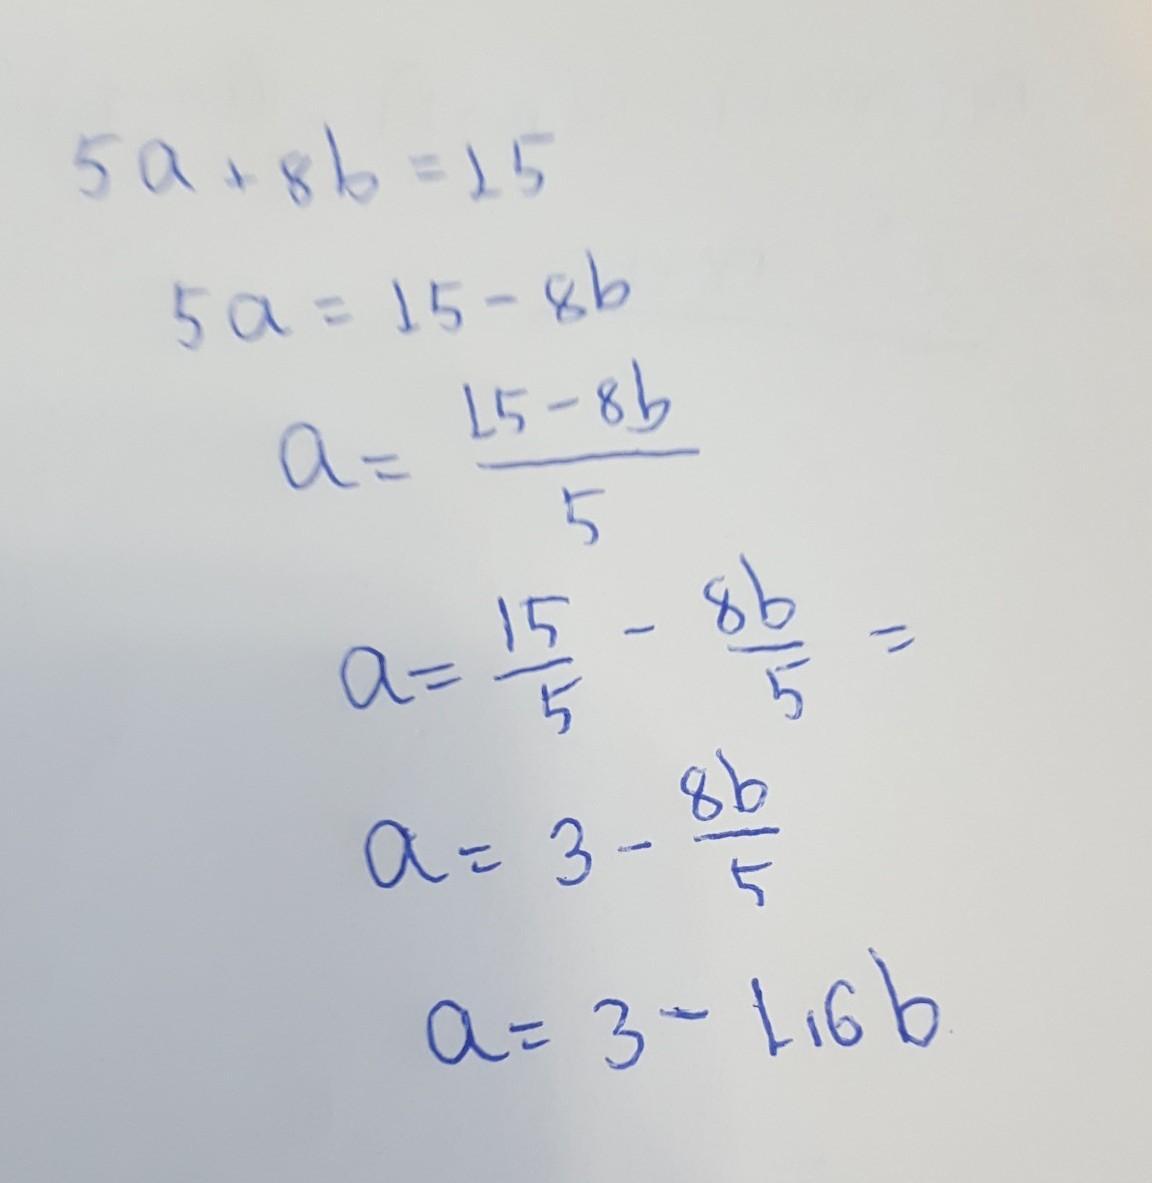 5a + 8b = 15
5a = 15 - 8b
a = \frac{15 - 8b}{5}
a = \frac{15}{5} - \frac{8b}{5} =
a = 3 - \frac{8b}{5}
a = 3 - 1,6b